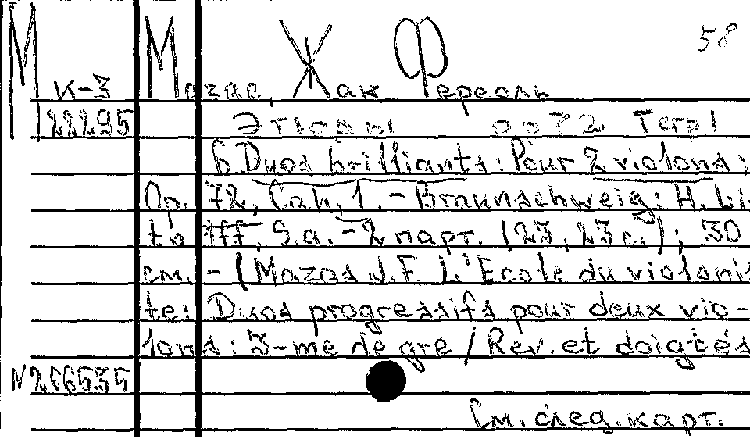 58
М К-3 Мазас, Жак Фереоль
22295 Этюды op 72 Тетр 1
6 Duos brilliants: Pour 2 violons:
Op. 72, Cah. 1. - Braunschweig: H. Li-
tolff, S.a. - 2 парт. (23, 23 с.); 30
см. - (Mazas J.F. L'Ecole du violonis
te: Duos progressifs pour deux vio-
lons: 3-me degre / Rev. et doigtés
N 216535
См. след. карт.